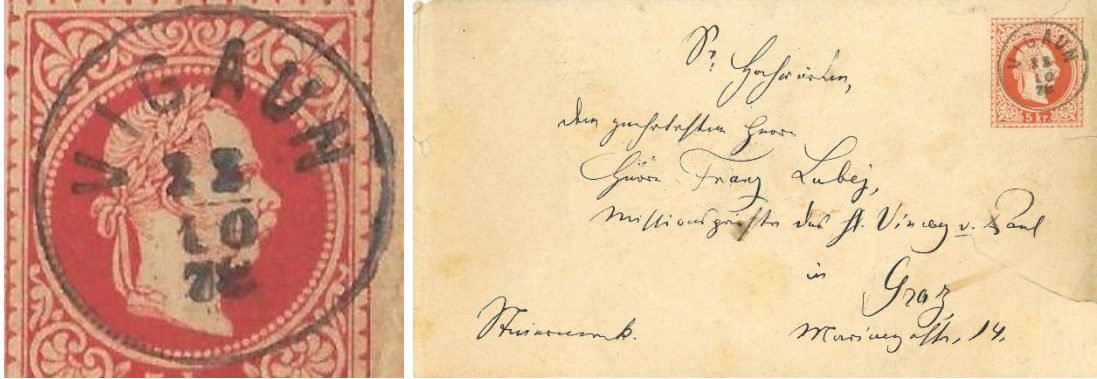 VIGAUN
10
Sr. Hochwürden,
dem geehrtesten Herrn
Herrn Franz Lubej,
Missionspriester des hl. Vincenz v. Paul
in
Graz
Steiermark.
Mariengasse, 14.
VIGAUN
10
5 kr.